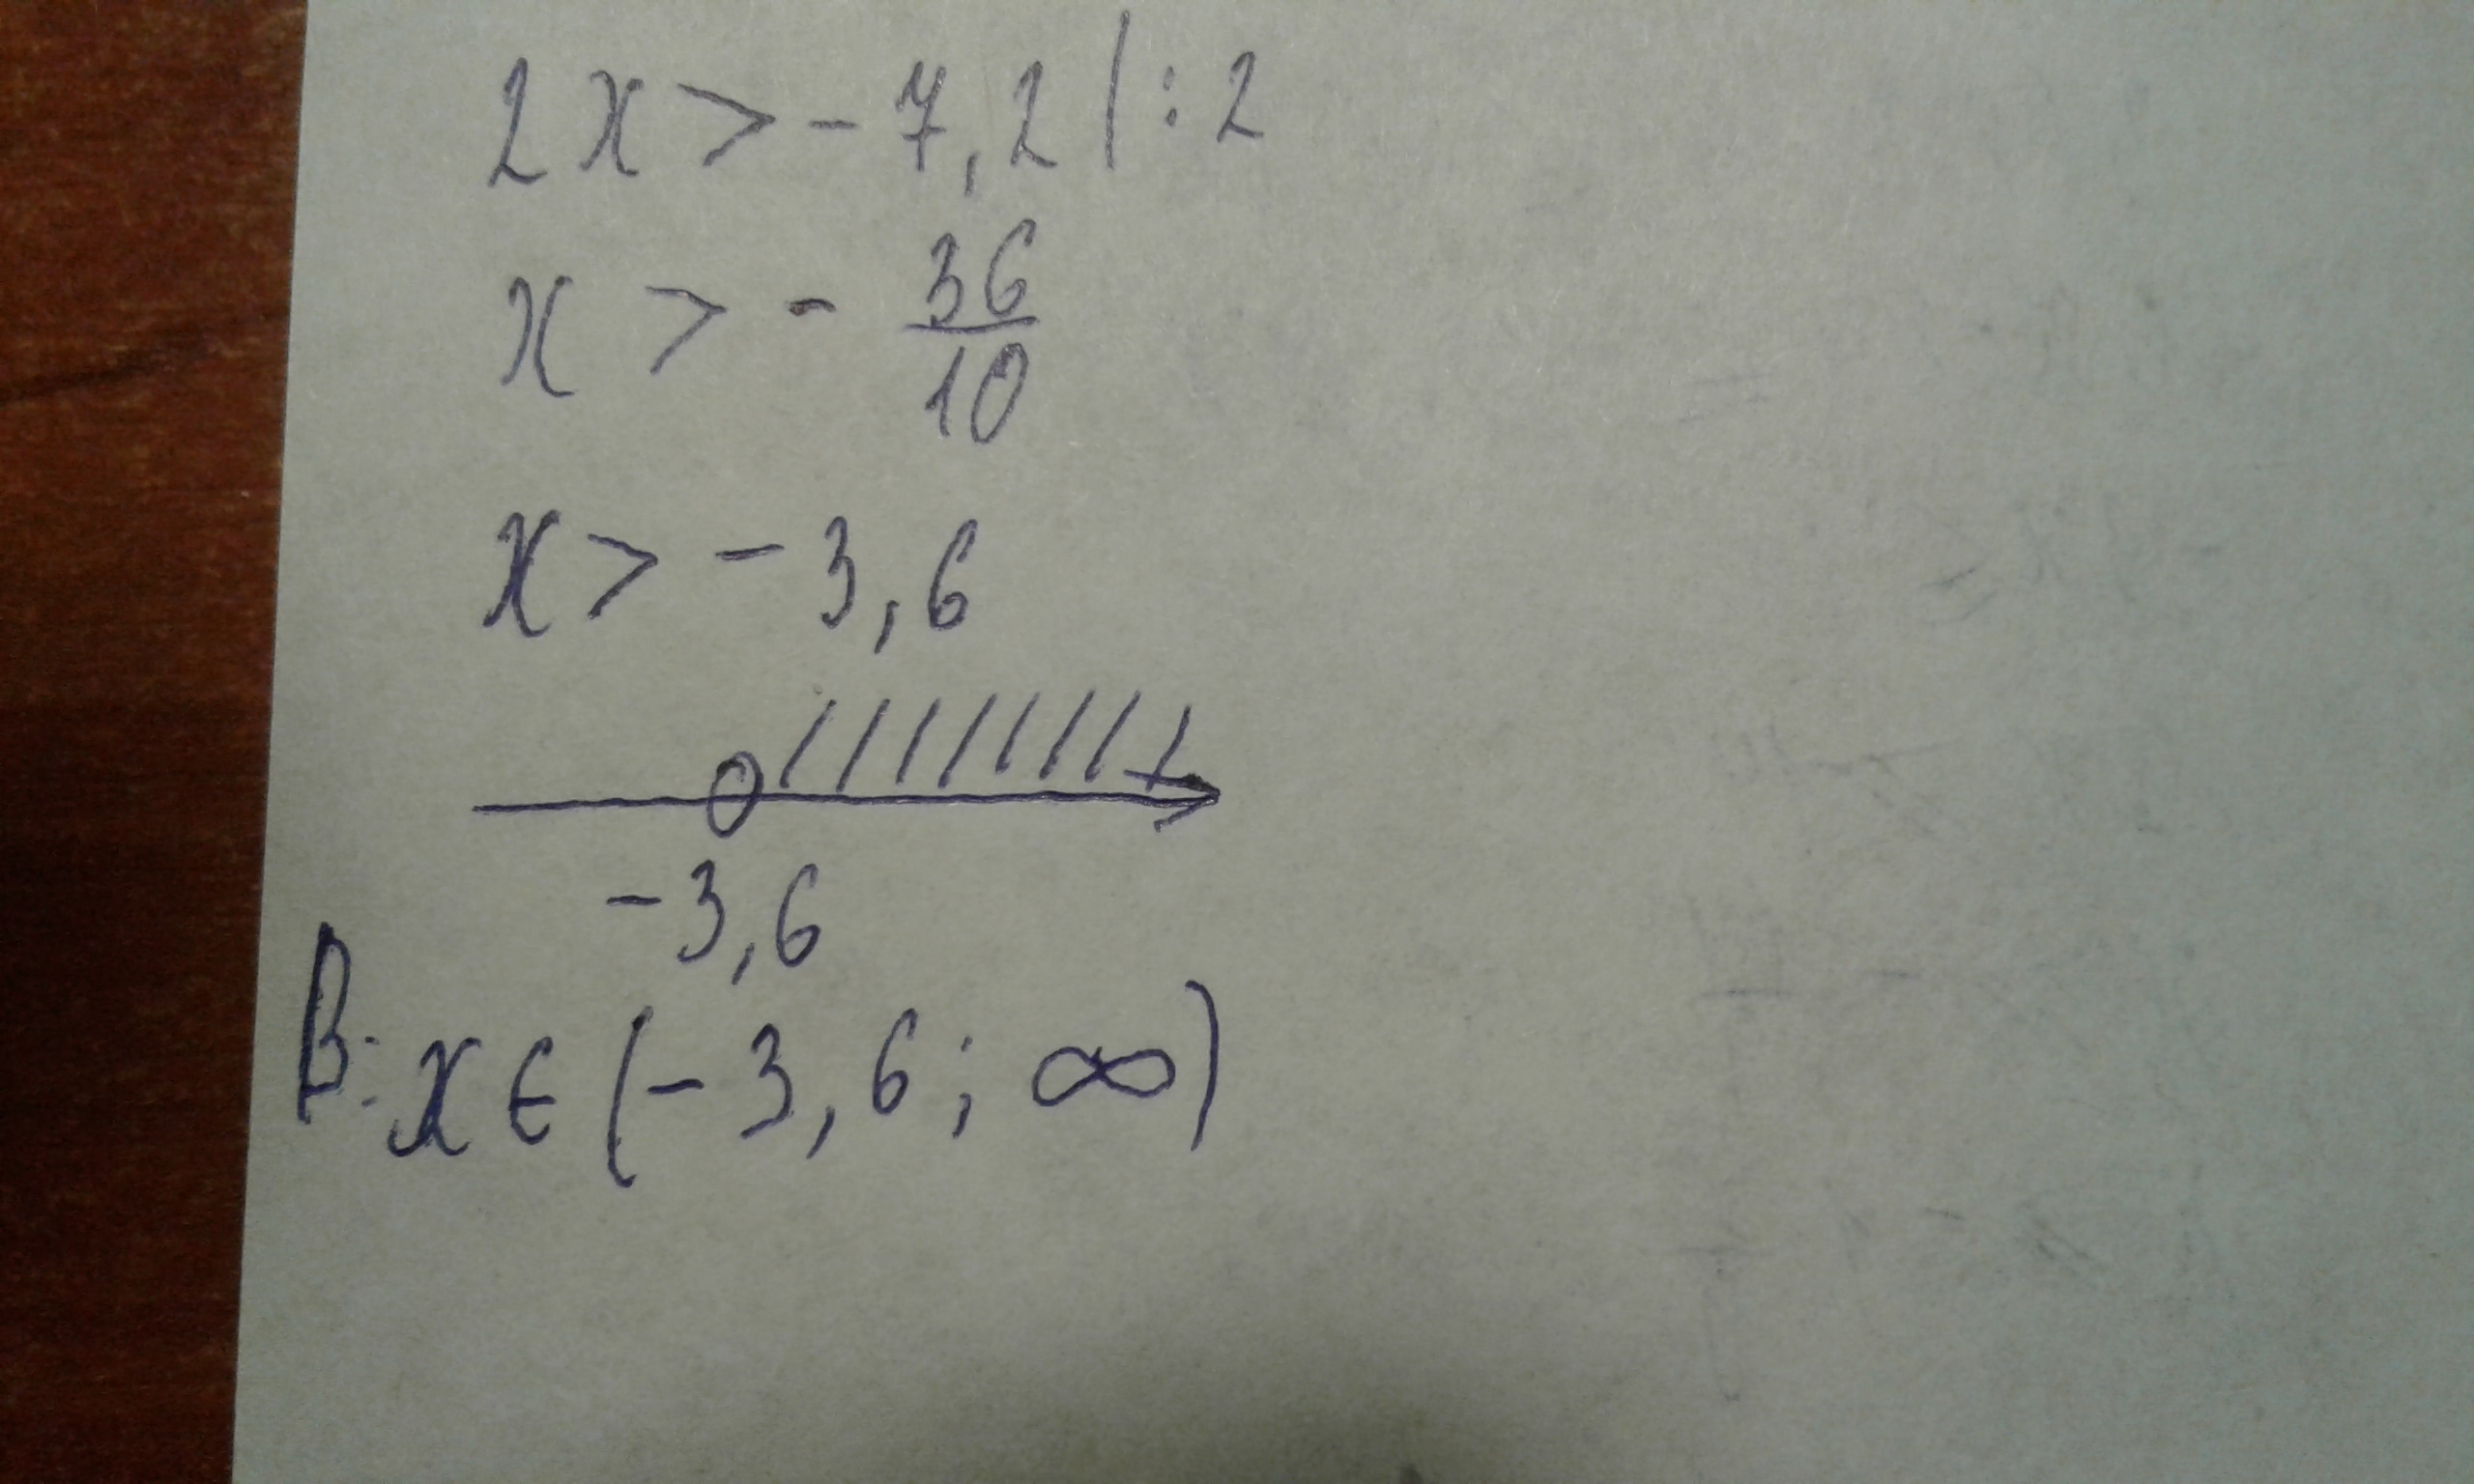 2x > - 7,2 | : 2
x > - 36/10
x > - 3,6
-3,6
В: x ∈ (- 3,6 ; ∞)